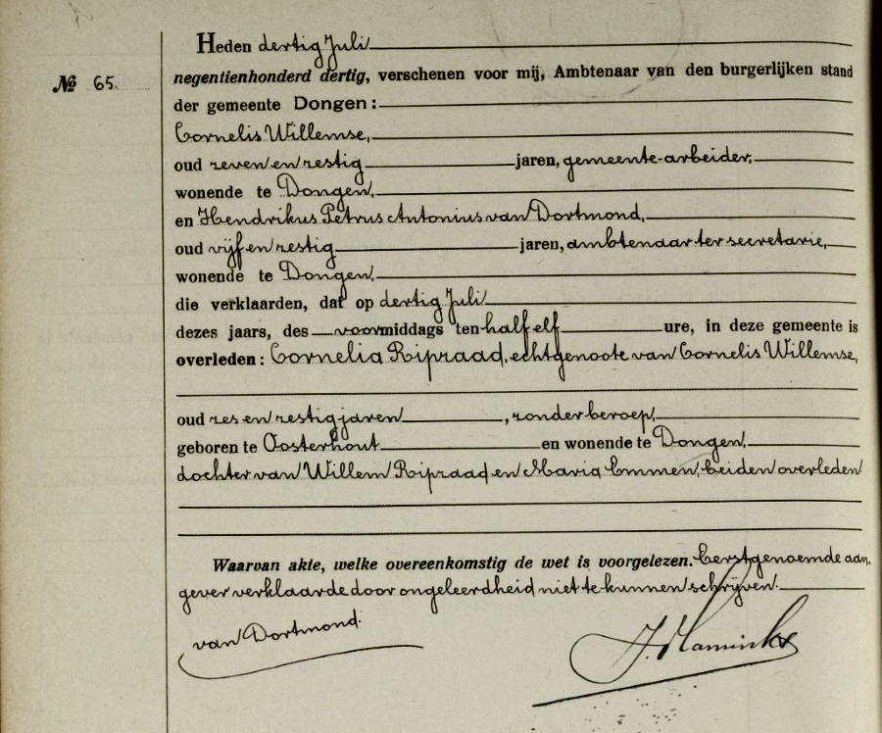 Heden dertig Juli
№ 65.
negentienhonderd dertig, verschenen voor mij, Ambtenaar van den burgerlijken stand
der gemeente Dongen:
Cornelis Willemse,
oud zeven en zestig jaren, gemeente-arbeider,
wonende te Dongen,
en Hendrikus Petrus Antonius van Dortmond,
oud vijf en zestig jaren, ambtenaar ter secretarie,
wonende te Dongen,
die verklaarden, dat op dertig Juli
dezes jaars, des voormiddags ten half elf ure, in deze gemeente is
overleden: Cornelia Ripzaad, echtgenoote van Cornelis Willemse,
oud zes en zestig jaren, zonder beroep,
geboren te Oosterhout en wonende te Dongen,
dochter van Willem Ripzaad en Maria Emmen, beiden overleden
Waarvan akte, welke overeenkomstig de wet is voorgelezen. Eerstgenoemde aan
gever verklaarde door ongeleerdheid niet te kunnen schrijven.
van Dortmond.